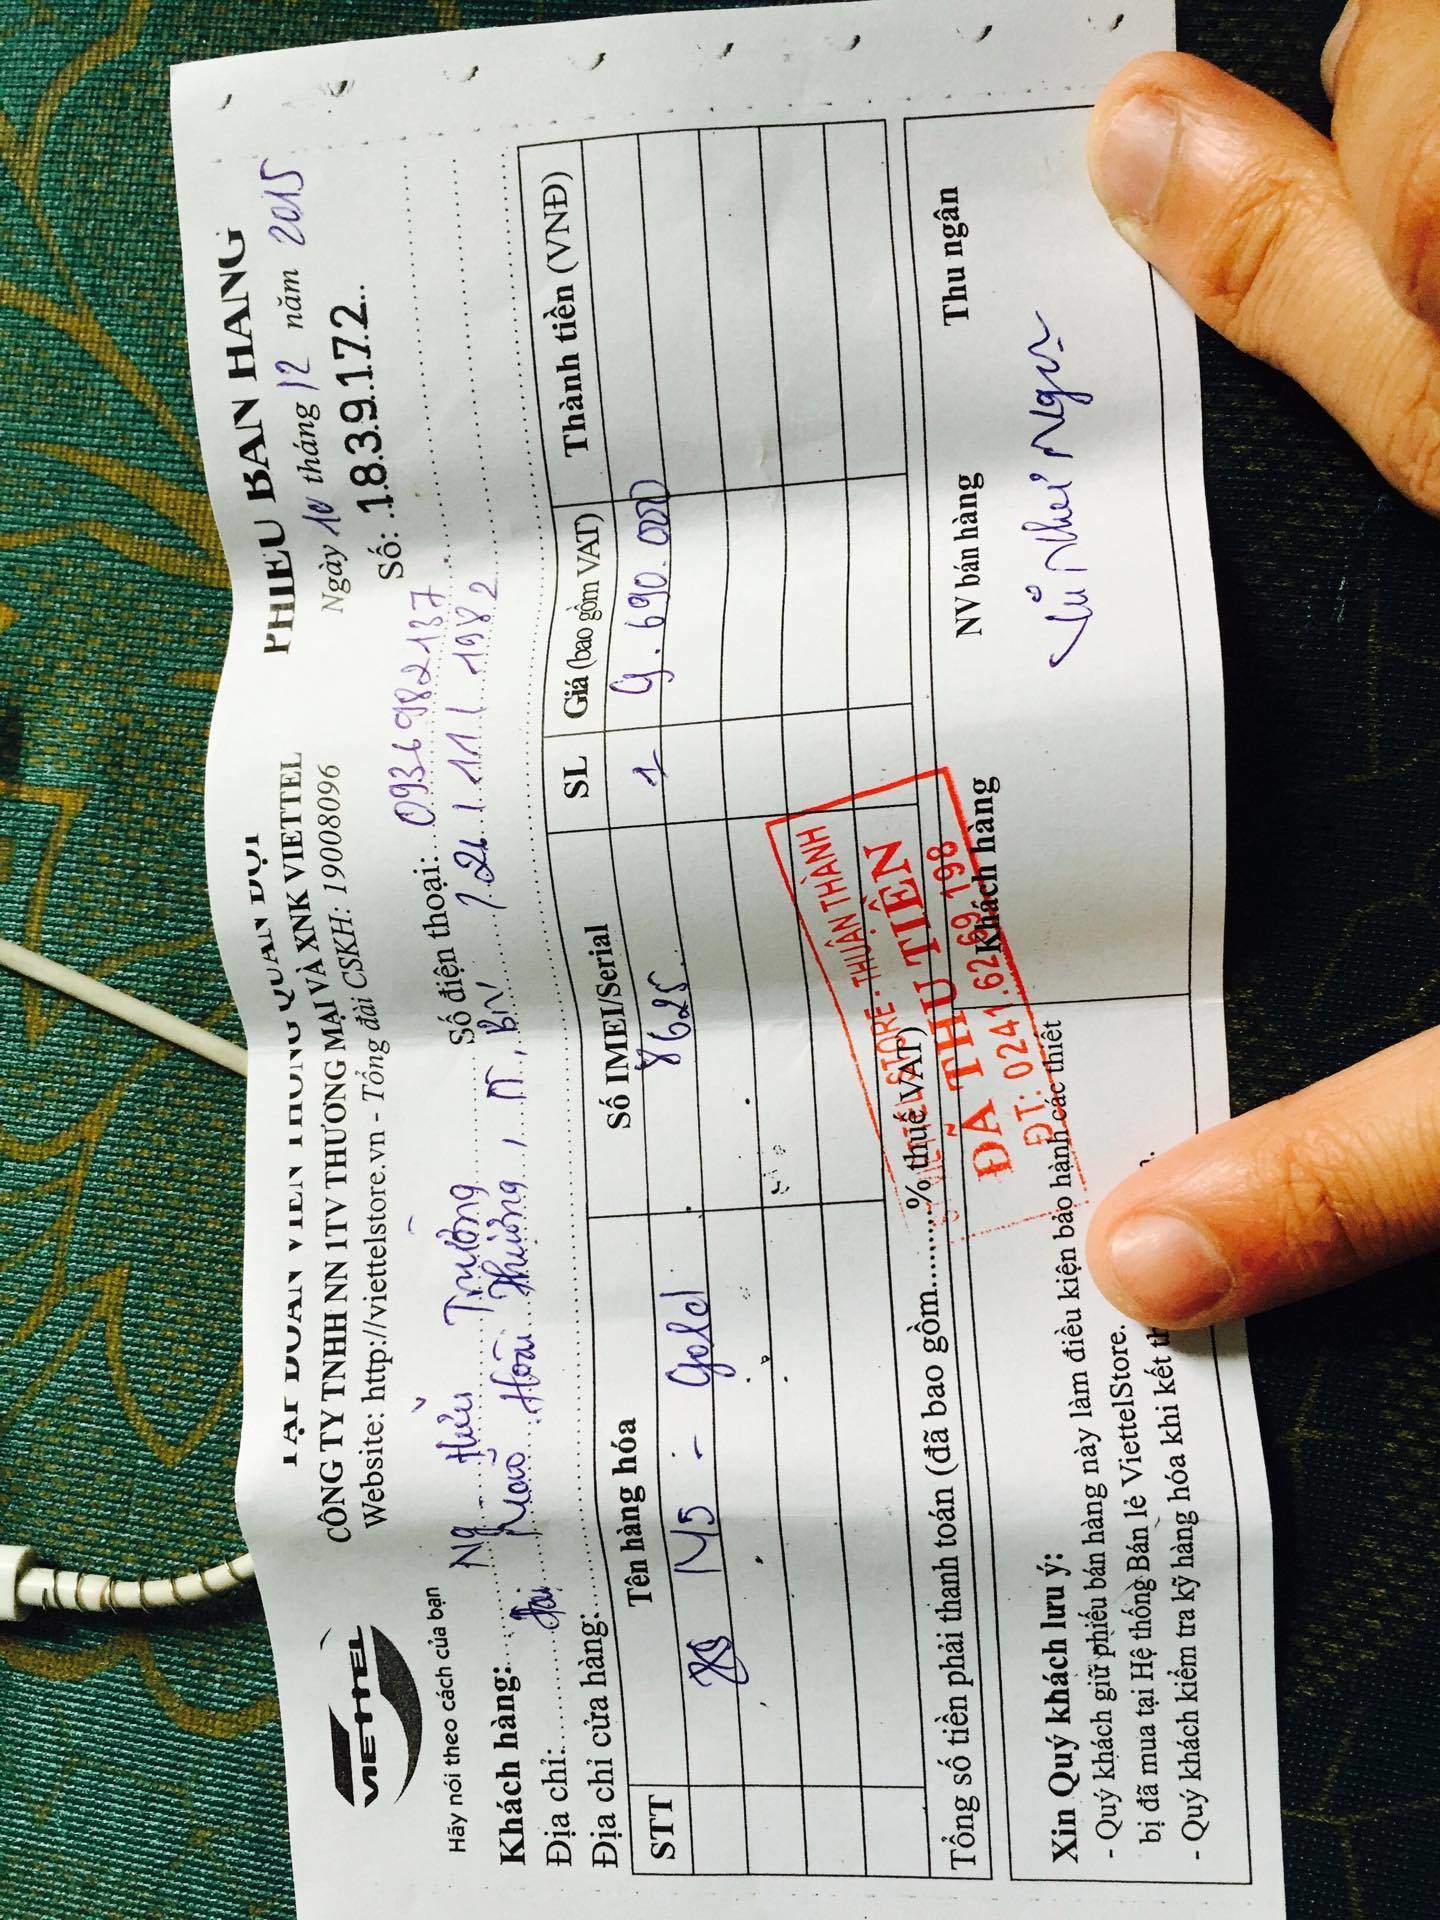 VIETTEL
Hãy nói theo cách của bạn
TẬP ĐOÀN VIỄN THÔNG QUÂN ĐỘI
CÔNG TY TNHH NN 1TV THƯƠNG MẠI VÀ XNK VIETTEL
Website: http://viettelstore.vn - Tổng đài CSKH: 19008096
PHIẾU BÁN HÀNG
Ngày 10 tháng 12 năm 2015
Số: 1.8.3.9.1.7.2
Khách hàng: Ng Hữu Trường Số điện thoại: 0936982137
Địa chỉ: Hoài Thượng, TT, BN 121/11/1982
Địa chỉ cửa hàng:
STT Tên hàng hóa Số IMEI/Serial SL Giá (bao gồm VAT) Thành tiền (VNĐ)
M5 - Gold 8625 1 9.690.000
Tổng số tiền phải thanh toán (đã bao gồm........% thuế VAT)
VIETTEL STORE - THUẬN THÀNH
ĐÃ THU TIỀN
ĐT: 0241.6269.198
Xin Quý khách lưu ý:
- Quý khách giữ phiếu bán hàng này làm điều kiện bảo hành các thiết
bị đã mua tại Hệ thống Bán lẻ ViettelStore.
- Quý khách kiểm tra kỹ hàng hóa khi kết
Khách hàng NV bán hàng Thu ngân